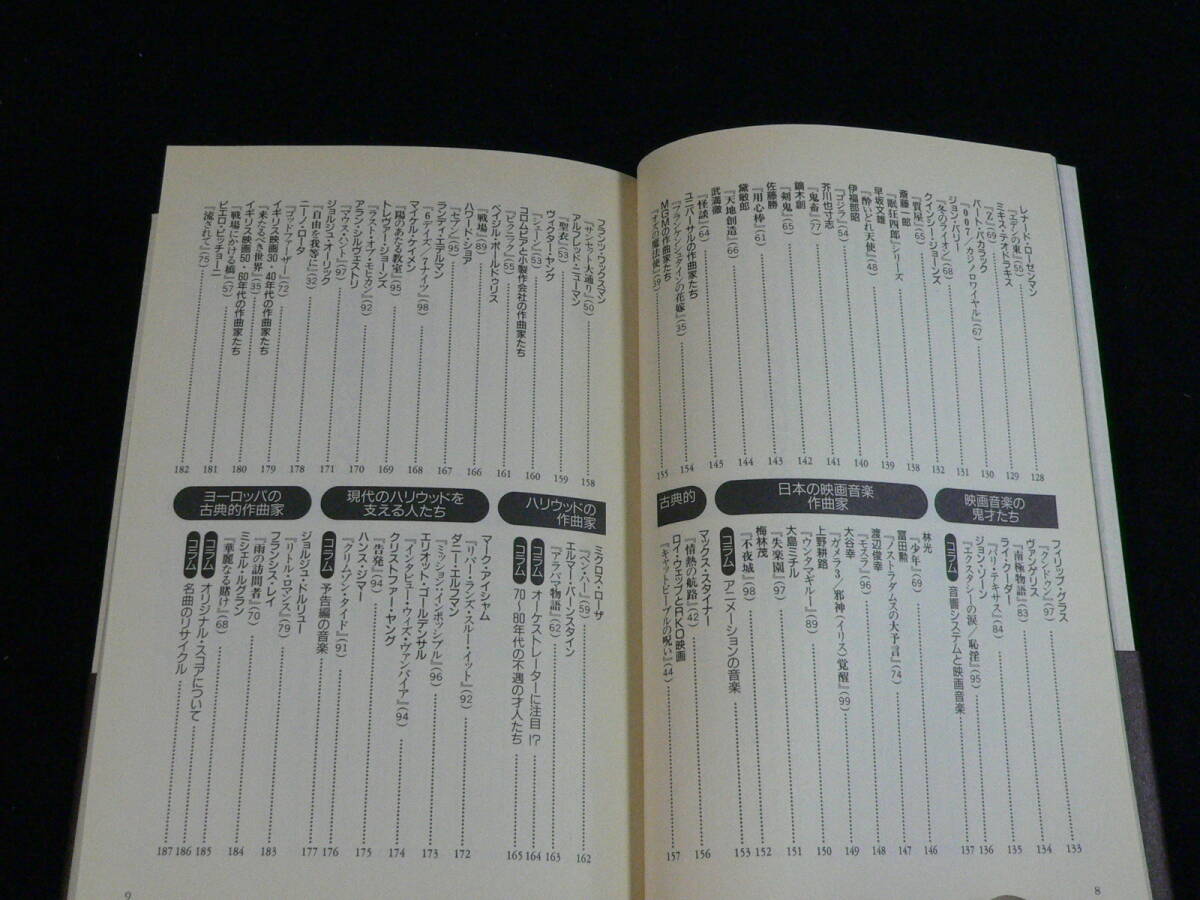 レナード・ローゼンマン
『エデンの東』(55) 128
ミキス・テオドラキス
『Z』(69) 129
バート・バカラック
『007/カジノロワイヤル』(67) 130
ジョン・バリー
『冬のライオン』(68) 131
クインシー・ジョーンズ
『質屋』(65) 132
斎藤一郎
『眠狂四郎』シリーズ 138
早坂文雄
『酔いどれ天使』(48) 139
伊福部昭
『ゴジラ』(54) 140
芥川也寸志
『鬼畜』(77) 141
鏑木創
『剣鬼』(65) 142
佐藤勝
『用心棒』(61) 143
黛敏郎
『天地創造』(66) 144
武満徹
『怪談』(64) 145
ユニバーサルの作曲家たち
『フランケンシュタインの花嫁』(35) 154
MGMの作曲家たち
『オズの魔法使』(39) 155
映画音楽の鬼才たち
日本の映画音楽作曲家
古典的
フィリップ・グラス
『クンドゥン』(97) 133
ヴァンゲリス
『南極物語』(83) 134
ライ・クーダー
『パリ・テキサス』(84) 135
ジョン・ゾーン
『エクスタシーの涙/恥淫』(95) 136
コラム 音響システムと映画音楽 137
林光
『少年』(69) 146
冨田勲
『ノストラダムスの大予言』(74) 147
渡辺俊幸
『モスラ』(96) 148
大谷幸
『ガメラ3/邪神〈イリス〉覚醒』(99) 149
上野耕路
『ウンタマギルー』(89) 150
大島ミチル
『失楽園』(97) 151
梅林茂
『不夜城』(98) 152
コラム アニメーションの音楽 153
マックス・スタイナー
『情熱の航路』(42) 156
ロイ・ウェッブとRKO映画
『キャットピープルの呪い』(44) 157
8
フランツ・ワックスマン
『サンセット大通り』(50) 158
アルフレッド・ニューマン
『聖衣』(53) 159
ヴィクター・ヤング
『シェーン』(53) 160
コロムビアと小製作会社の作曲家たち
『ピクニック』(55) 161
ベイジル・ポールドゥリス
『戦場』(89) 166
ハワード・ショア
『セブン』(95) 167
ランディ・エデルマン
『6デイズ/7ナイツ』(98) 168
マイケル・ケイメン
『陽のあたる教室』(95) 169
トレヴァー・ジョーンズ
『ラスト・オブ・モヒカン』(92) 170
アラン・シルヴェストリ
『マウス・ハント』(97) 171
ジョルジュ・オーリック
『自由を我等に』(32) 178
ニーノ・ロータ
『ゴッドファーザー』(72) 179
イギリス映画30・40年代の作曲家たち
『来たるべき世界』(35) 180
イギリス映画50・60年代の作曲家たち
『戦場にかける橋』(57) 181
ピエロ・ピッチョーニ
『流されて』(75) 182
ハリウッドの作曲家
現代のハリウッドを支える人たち
ヨーロッパの古典的作曲家
ミクロス・ローザ
『ベン・ハー』(59) 162
エルマー・バーンスタイン
『アラバマ物語』(62) 163
コラム オーケストレーターに注目!? 164
コラム 70〜80年代の不遇の才人たち 165
マーク・アイシャム
『リバー・ランズ・スルー・イット』(92) 172
ダニー・エルフマン
『ミッション・インポッシブル』(96) 173
エリオット・ゴールデンサル
『インタビュー・ウィズ・ヴァンパイア』(94) 174
クリストファー・ヤング
『告発』(94) 175
ハンス・ジマー
『クリムゾン・タイド』(91) 176
コラム 予告編の音楽 177
ジョルジュ・ドルリュー
『リトル・ロマンス』(79) 183
フランシス・レイ
『雨の訪問者』(70) 184
ミシェル・ルグラン
『華麗なる賭け』(68) 185
コラム オリジナル・スコアについて 186
コラム 名曲のリサイクル 187
9